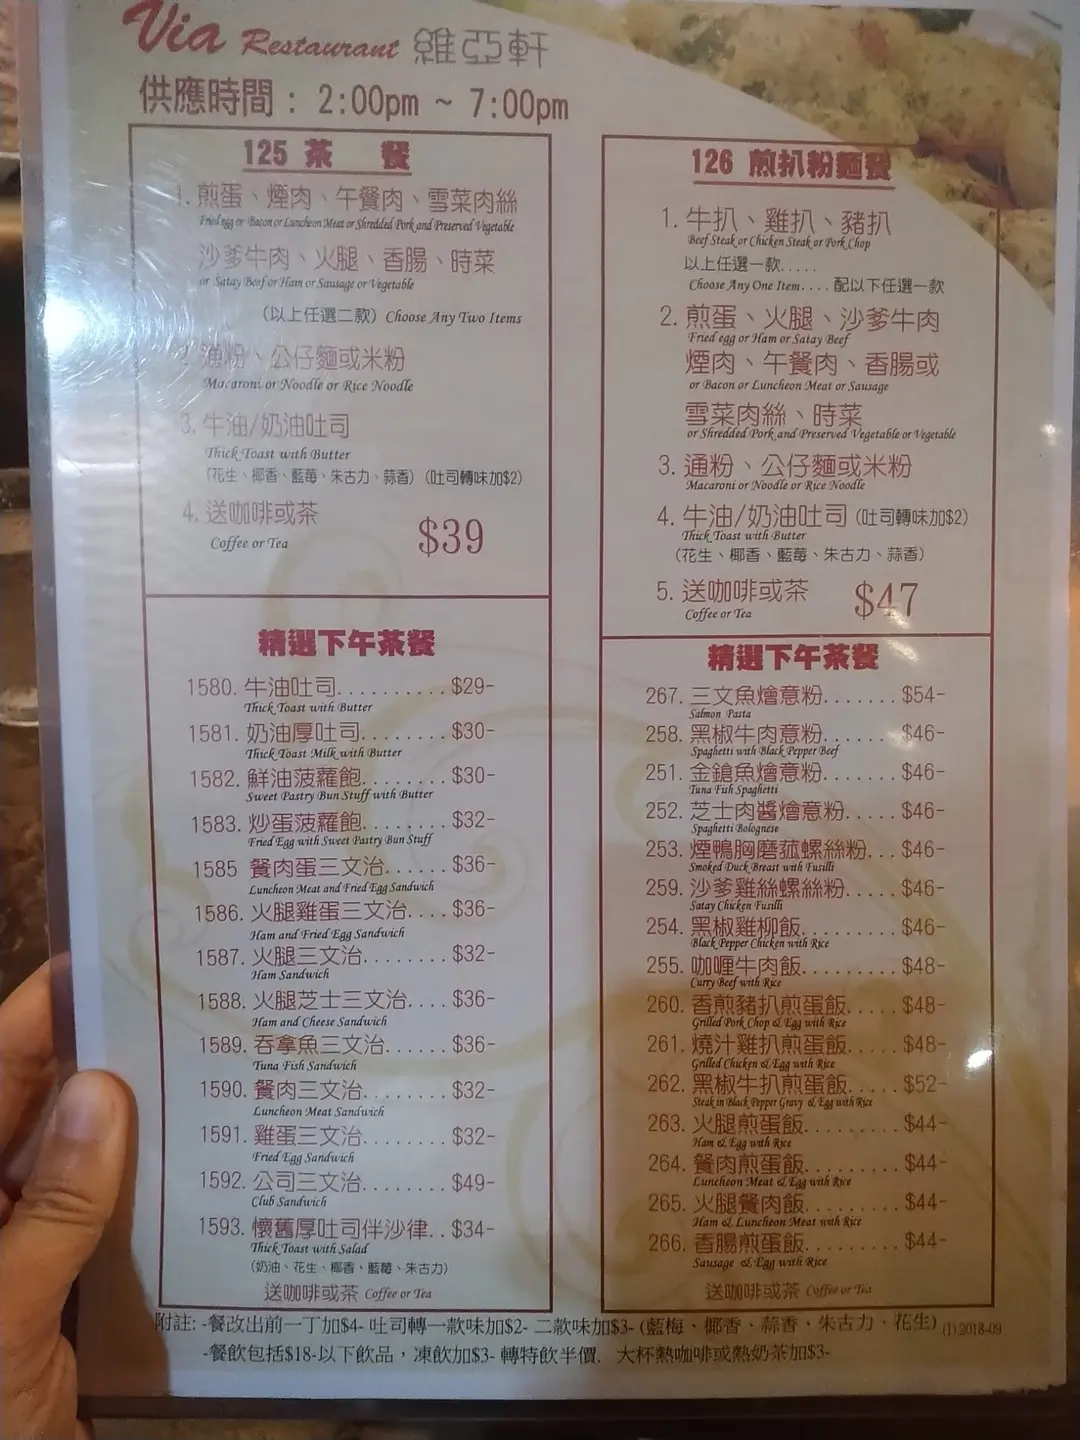 Via Restaurant 維亞軒
供應時間 : 2:00pm ~ 7:00pm
125 茶 餐
1. 煎蛋、煙肉、午餐肉、雪菜肉絲
Fried egg or Bacon or Luncheon Meat or Shredded Pork and Preserved Vegetable
沙爹牛肉、火腿、香腸、時菜
or Satay Beef or Ham or Sausage or Vegetable
(以上任選二款) Choose Any Two Items
2. 通粉、公仔麵或米粉
Macaroni or Noodle or Rice Noodle
3. 牛油/奶油吐司
Thick Toast with Butter
(花生、椰香、藍莓、朱古力、蒜香) (吐司轉味加$2)
4. 送咖啡或茶
Coffee or Tea
$39
精選下午茶餐
1580. 牛油吐司.......... $29-
Thick Toast with Butter
1581. 奶油厚吐司........ $30-
Thick Toast Milk with Butter
1582. 鮮油菠蘿飽........ $30-
Sweet Pastry Bun Stuff with Butter
1583. 炒蛋菠蘿飽........ $32-
Fried Egg with Sweet Pastry Bun Stuff
1585 餐肉蛋三文治...... $36-
Luncheon Meat and Fried Egg Sandwich
1586. 火腿雞蛋三文治.... $36-
Ham and Fried Egg Sandwich
1587. 火腿三文治........ $32-
Ham Sandwich
1588. 火腿芝士三文治.... $36-
Ham and Cheese Sandwich
1589. 吞拿魚三文治...... $36-
Tuna Fish Sandwich
1590. 餐肉三文治........ $32-
Luncheon Meat Sandwich
1591. 雞蛋三文治........ $32-
Fried Egg Sandwich
1592. 公司三文治........ $49-
Club Sandwich
1593. 懷舊厚吐司伴沙律.. $34-
Thick Toast with Salad
(奶油、花生、椰香、藍莓、朱古力)
送咖啡或茶 Coffee or Tea
126 煎扒粉麵餐
1. 牛扒、雞扒、豬扒
Beef Steak or Chicken Steak or Pork Chop
以上任選一款.....
Choose Any One Item.... 配以下任選一款
2. 煎蛋、火腿、沙爹牛肉
Fried egg or Ham or Satay Beef
煙肉、午餐肉、香腸或
or Bacon or Luncheon Meat or Sausage
雪菜肉絲、時菜
or Shredded Pork and Preserved Vegetable or Vegetable
3. 通粉、公仔麵或米粉
Macaroni or Noodle or Rice Noodle
4. 牛油/奶油吐司 (吐司轉味加$2)
Thick Toast with Butter
(花生、椰香、藍莓、朱古力、蒜香)
5. 送咖啡或茶
Coffee or Tea
$47
精選下午茶餐
267. 三文魚燴意粉....... $54-
Salmon Pasta
258. 黑椒牛肉意粉....... $46-
Spaghetti with Black Pepper Beef
251. 金鎗魚燴意粉....... $46-
Tuna Fuh Spaghetti
252. 芝士肉醬燴意粉..... $46-
Spaghetti Bolognese
253. 煙鴨胸磨菰螺絲粉... $46-
Smoked Duck Breast with Fusilli
259. 沙爹雞絲螺絲粉..... $46-
Satay Chicken Fusilli
254. 黑椒雞柳飯......... $46-
Black Pepper Chicken with Rice
255. 咖喱牛肉飯......... $48-
Curry Beef with Rice
260. 香煎豬扒煎蛋飯..... $48-
Grilled Pork Chop & Egg with Rice
261. 燒汁雞扒煎蛋飯..... $48-
Grilled Chicken & Egg with Rice
262. 黑椒牛扒煎蛋飯..... $52-
Steak in Black Pepper Gravy & Egg with Rice
263. 火腿煎蛋飯......... $44-
Ham & Egg with Rice
264. 餐肉煎蛋飯......... $44-
Luncheon Meat & Egg with Rice
265. 火腿餐肉飯......... $44-
Ham & Luncheon Meat with Rice
266. 香腸煎蛋飯......... $44-
Sausage & Egg with Rice
送咖啡或茶 Coffee or Tea
附註: -餐改出前一丁加$4- 吐司轉一款味加$2- 二款味加$3- (藍梅、椰香、蒜香、朱古力、花生) (1) 2018-09
-餐飲包括$18-以下飲品，凍飲加$3- 轉特飲半價. 大杯熱咖啡或熱奶茶加$3-